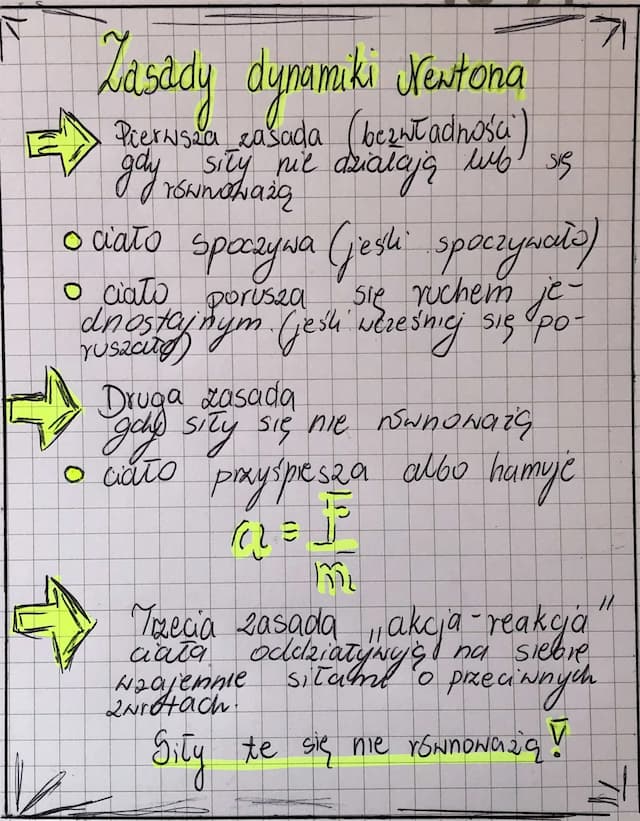 Zasady dynamiki Newtona
Pierwsza zasada (bezwładności)
gdy siły nie działają lub się
równoważą
ciało spoczywa (jeśli spoczywało)
ciało porusza się ruchem je-
dnostajnym (jeśli wcześniej się po-
ruszało)
Druga zasada
gdy siły się nie równoważą
ciało przyśpiesza albo hamuje
a = F
m
Trzecia zasada „akcja-reakcja”
ciała oddziaływują na siebie
wzajemnie siłami o przeciwnych
zwrotach.
Siły te się nie równoważą!